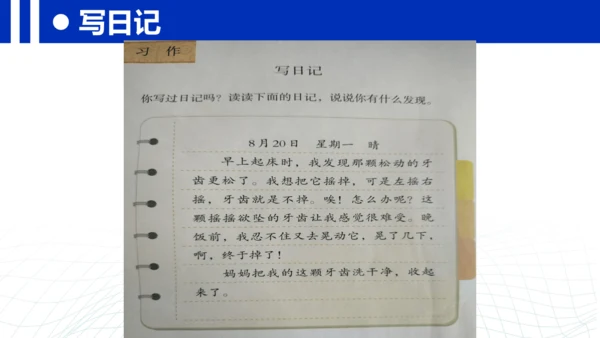 写日记
习 作
写日记
你写过日记吗？读读下面的日记，说说你有什么发现。
8月20日 星期一 晴
早上起床时，我发现那颗松动的牙
齿更松了。我想把它摇掉，可是左摇右
摇，牙齿就是不掉。唉！怎么办呢？这
颗摇摇欲坠的牙齿让我感觉很难受。晚
饭前，我忍不住又去晃动它，晃了几下，
啊，终于掉了！
妈妈把我的这颗牙齿洗干净，收起
来了。